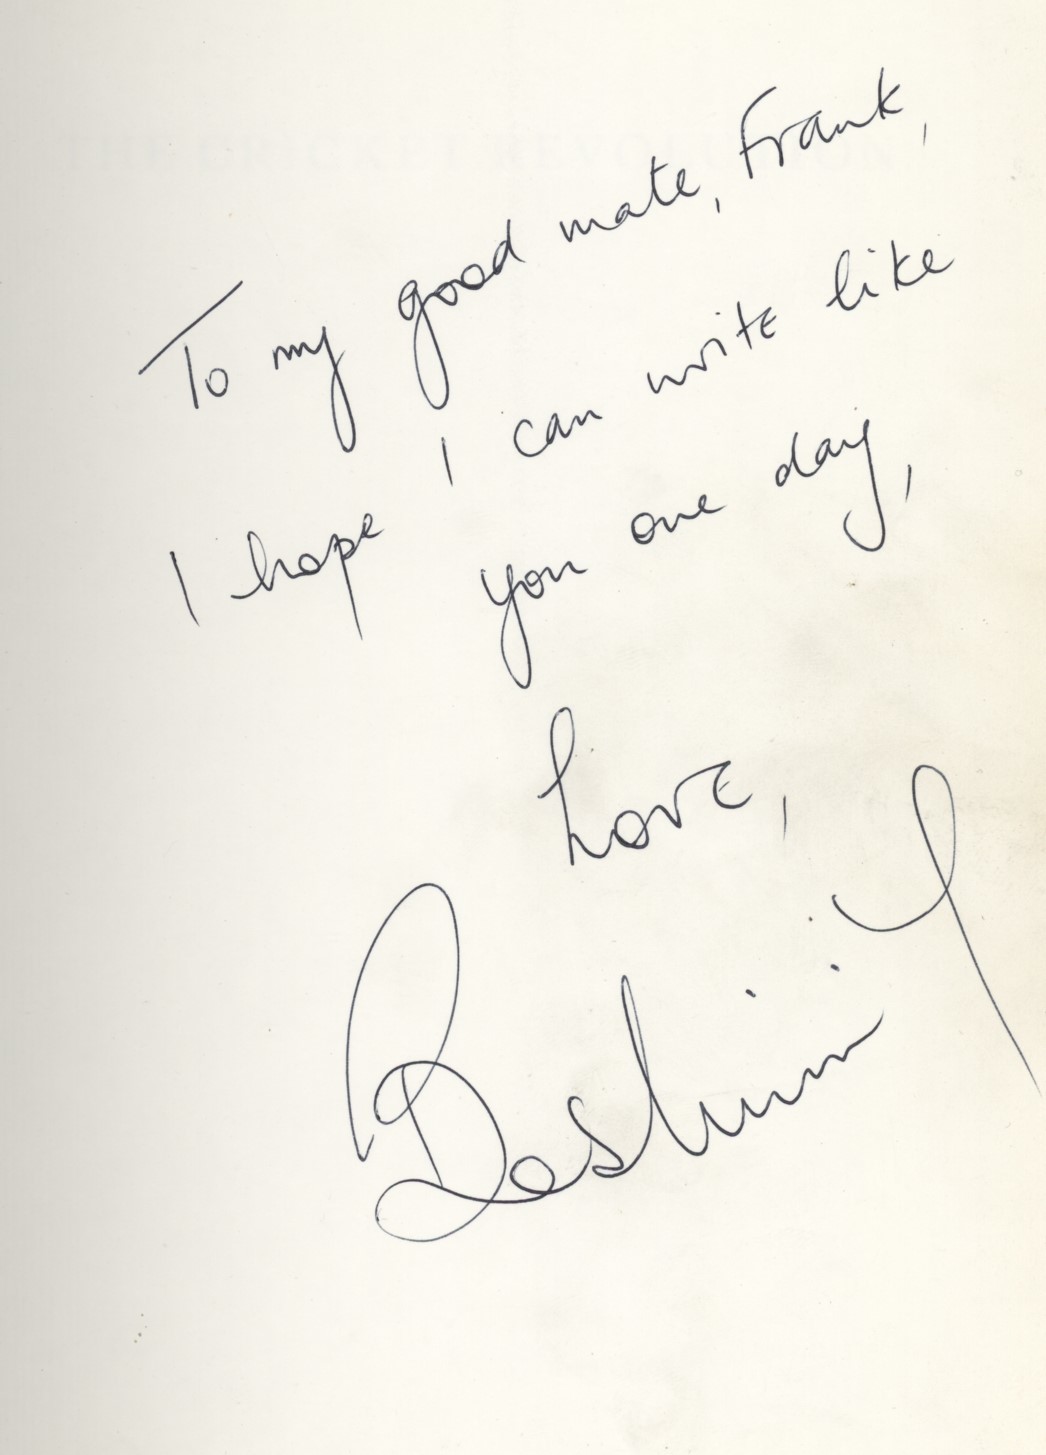 THE CRICKET REVOLUTION
To my good mate, Frank,
I hope I can write like
you one day,
Love,